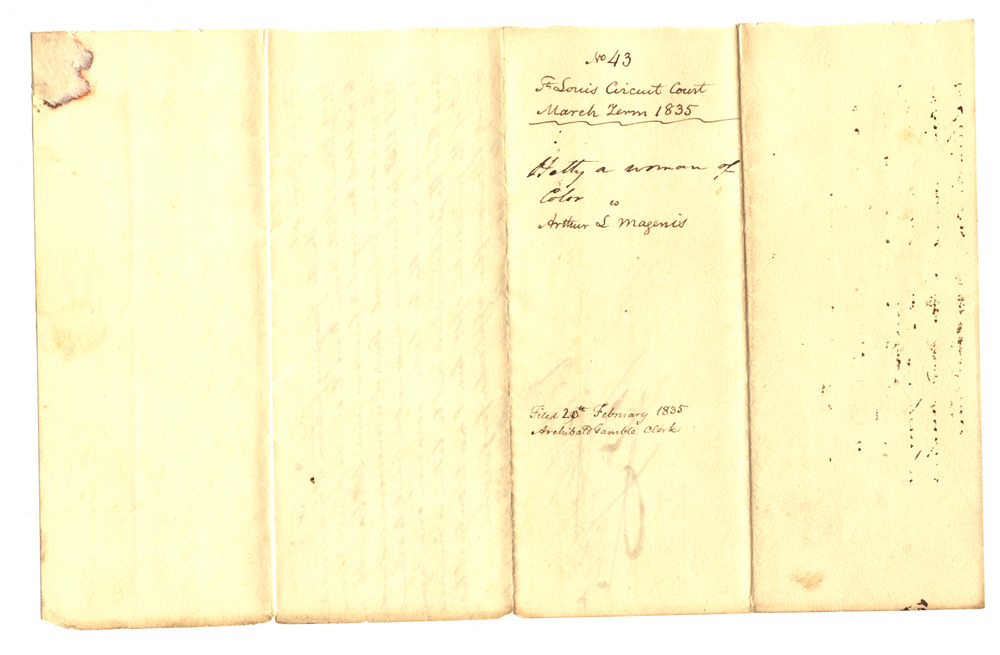 No 43
St Louis Circuit Court
March Term 1835
Hetty a woman of
Color vs
Arthur L Magenis
Filed 20th February 1835
Archibald Gamble Clerk